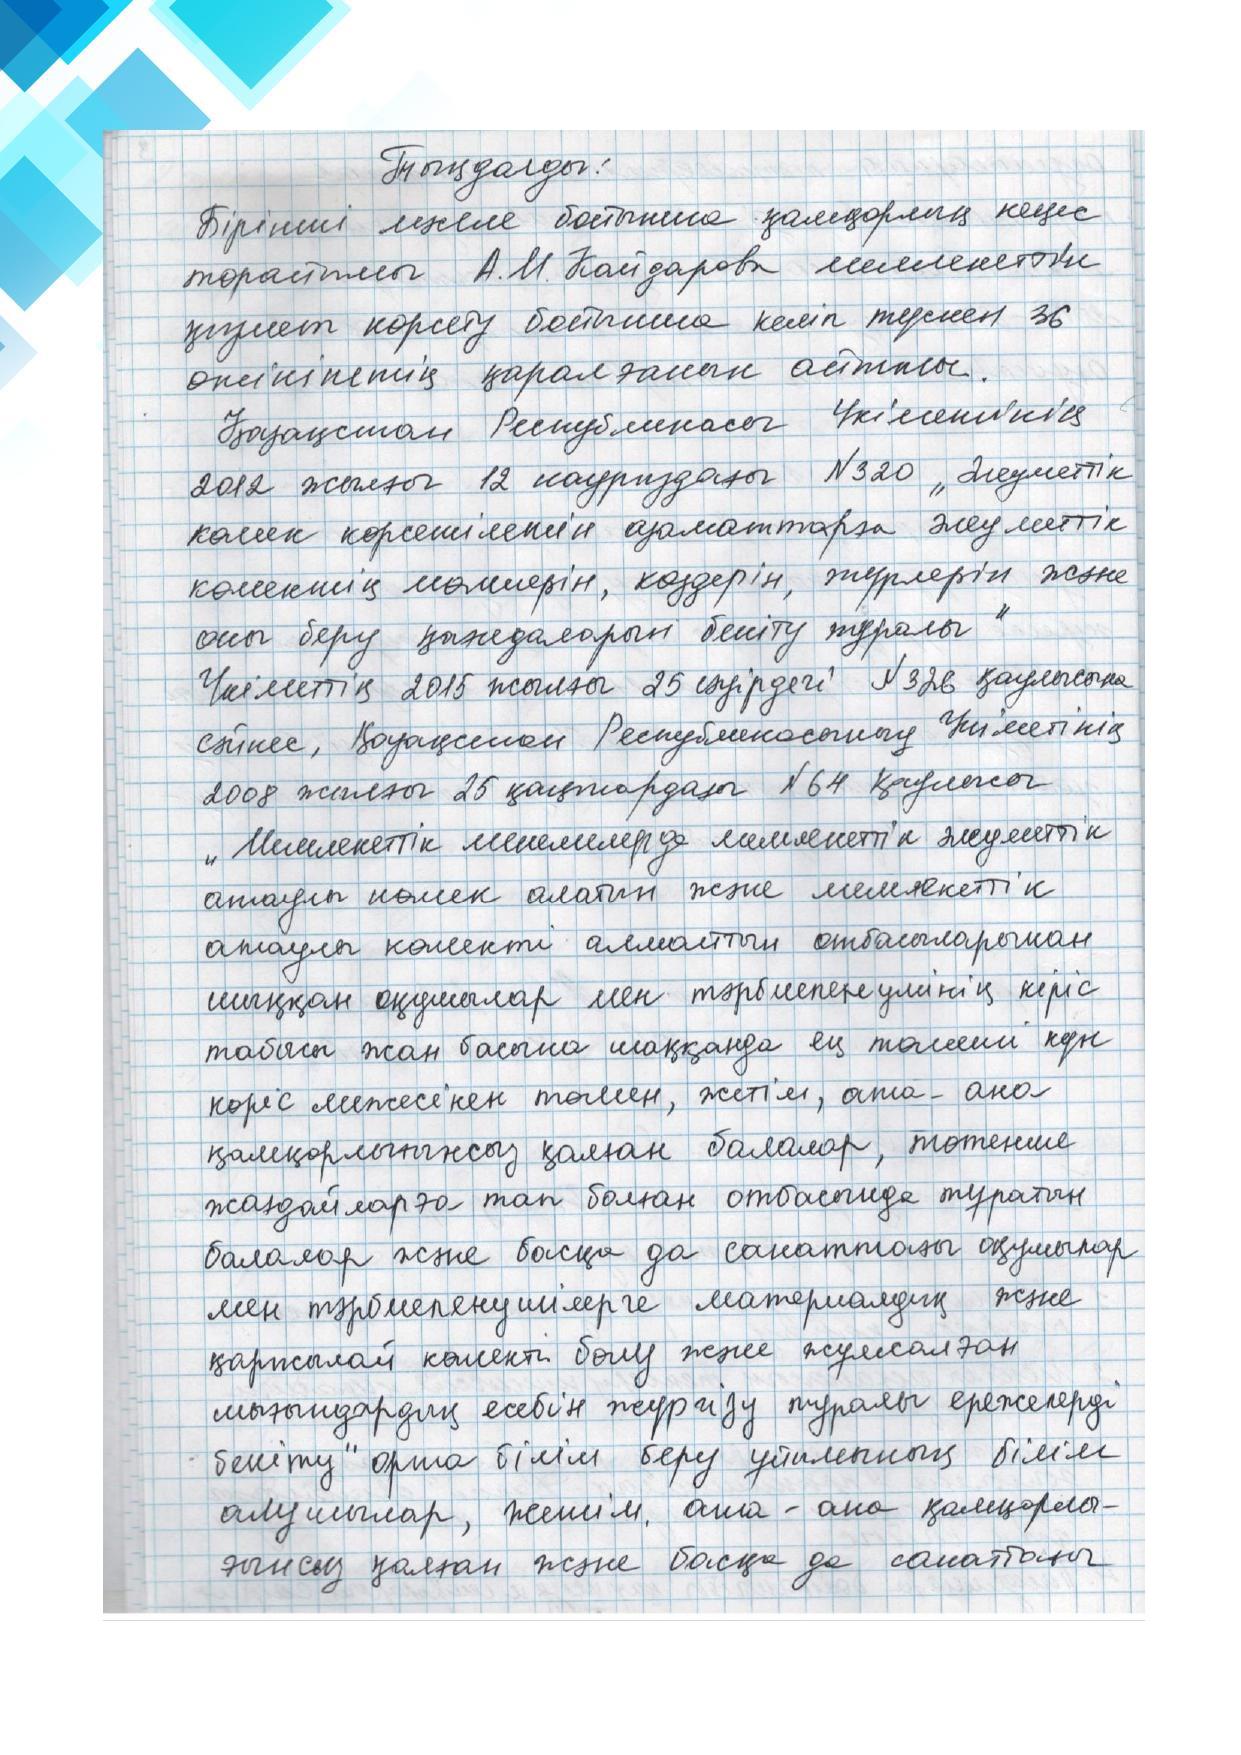 Тыңдалды:
Бірінші мәселе бойынша қамқорлық кеңес
төрайымы А.М.Кайдарова мемлекеттік
қызмет көрсету бойынша келіп түскен 36
өтініштің қаралғанын айтты.
Қазақстан Республикасы Үкіметінің
2012 жылғы 12 наурыздағы №320 „Әлеуметтік
көмек көрсетілетін азаматтарға әлеуметтік
көмектің мөлшерін, көздерін, түрлерін және
оны беру қағидаларын бекіту туралы"
Үкіметтің 2015 жылғы 25 сәуірдегі №326 қаулысына
сәйкес, Қазақстан Республикасының Үкіметінің
2008 жылғы 25 қаңтардағы №64 қаулысы
„Мемлекеттік мекемелерде мемлекеттік әлеуметтік
атаулы көмек алатын және мемлекеттік
атаулы көмекті алмайтын отбасыларынан
шыққан оқушылар мен тәрбиеленушінің кіріс
табысы жан басына шаққанда ең төменгі күн
көріс мөлшерінен төмен, жетім, ата-ана
қамқорлығынсыз қалған балалар, төтенше
жағдайларға тап болған отбасында тұратын
балалар және басқа да санаттағы оқушылар
мен тәрбиеленушілерге материалдық және
қаржылай көмекті бөлу және жұмсалған
шығындардың есебін жүргізу туралы ережелерді
бекіту" орта білім беру ұйымының білім
алушылар, жетім, ата-ана қамқорлы-
ғынсыз қалған және басқа да санаттағы